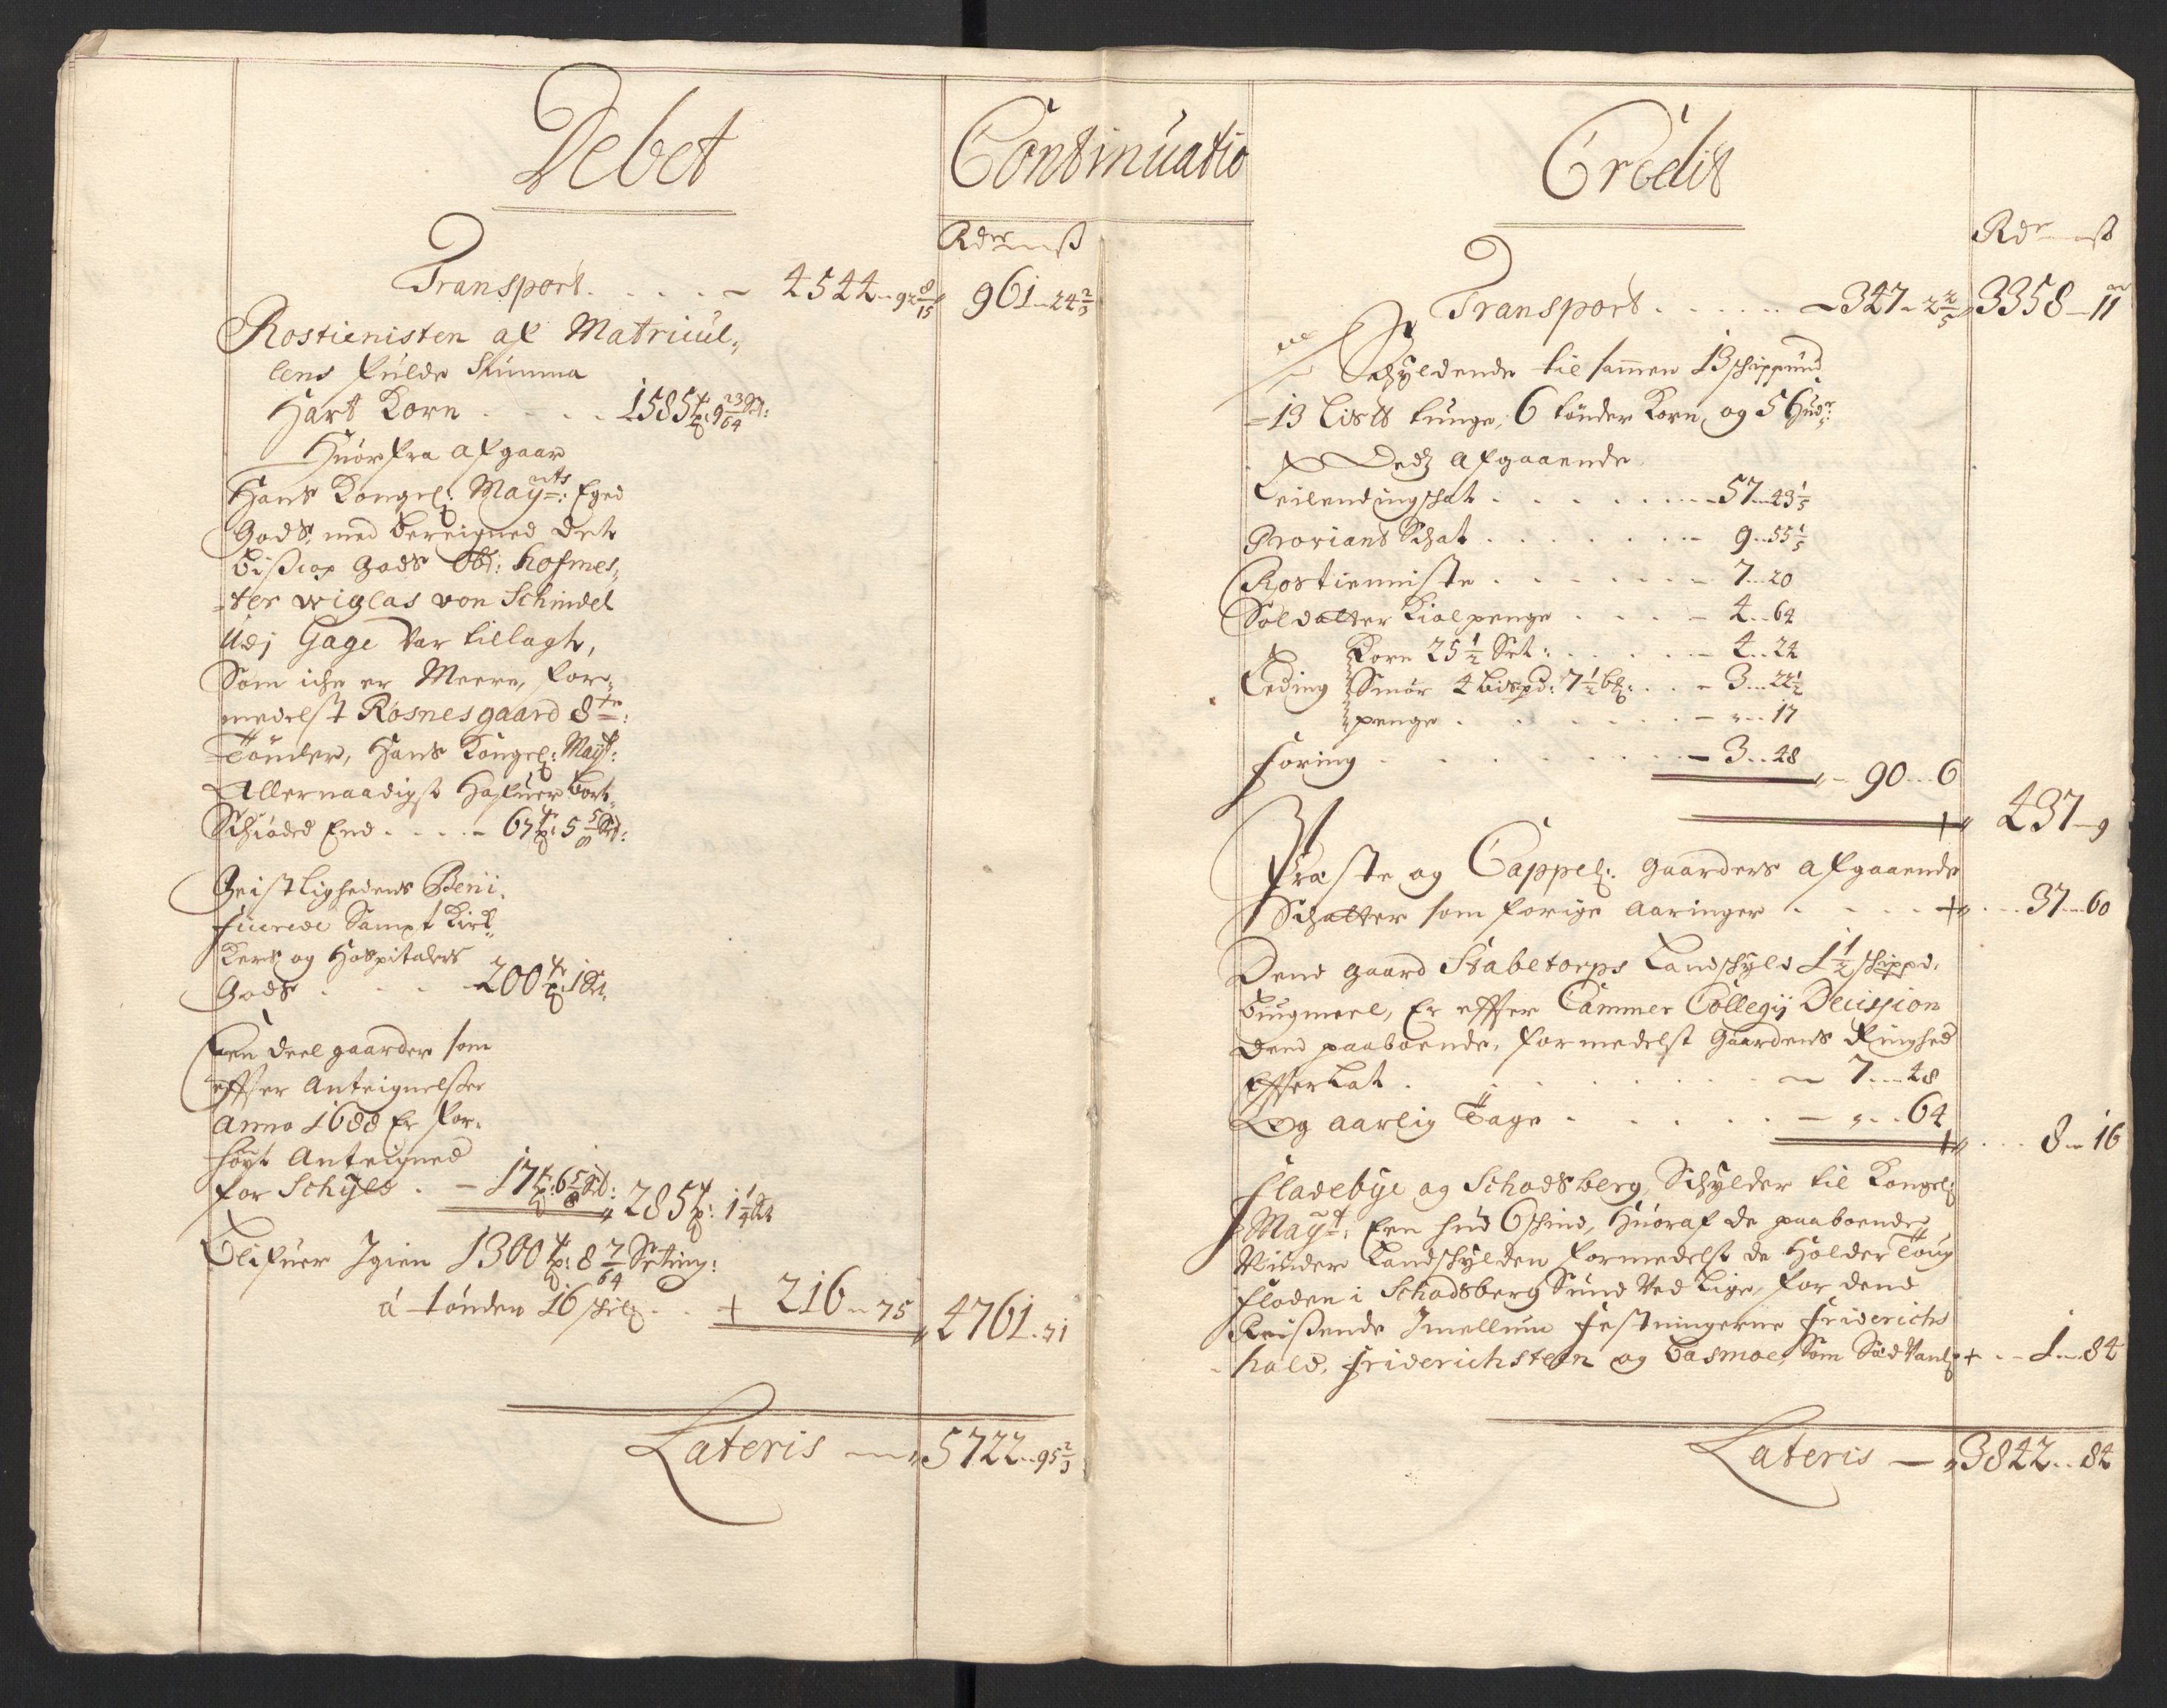 Debet
Continuatio
Rdr ß
Transport . . . . – 4544 – 92 8/15 961 – 24 2/3
Rostienisten af Matricul„
lens fulde Summa
Hart Korn . . . . 1585 tr: 9 23/64 Set:
Huorfra afgaar
Hans Kongel: Mayts: Eged
Gods, med bereigned det
Bisscop Gods Obr: hofmes„
ter wiglas von Schindel
Udj Gage var tillagt,
Som iche er Meere, for„
medelst Rosnesgaard 8te:
Tönder, Hans Kongel: Mayt:
Allernaadigst Hafuer bort„
Schiöded End . . . . – 67 tr: 5 5/8 Set:
Geistlighedens Beni„
ficerede Sampt Kirc„
Kers og Hospitalers
Gods . . . . – 200 tr: 1 Set.
Een deel gaarder som
effter Anteignelsser
Anno 1688 Er for„
höyt Anteigned
for Schyld . – 17 tr: 6 5/8 Set: 285 tr: 1 1/4 Set
Blifuer Igien 1300 tr: 8 7/64 Setting:
á tönden 16 schil . . + 216 – 75 4761 – 71
Lateris – 5722 – 95 2/3
Credit
Rdr ß
Transport . . . . . . – 347 – 2 2/5 3358 – 11
Schyldende til sammen 13 schippund
13 Lis lb tunge, 6 tönder Korn, og 5 Hudr:
Dedz Afgaaende
Leilendingschat . . . . . . . – 57 – 43 1/5
Proviant Schat . . . . . . . – 9 – 55 1/5
Rostienniste . . . . . . – 7 – 20
Soldatter Kiolpenge . . . . – 4 – 64
Korn 25 1/2 Set: . . . . . – 4 – 24
Leding Smör 4 bispd: 7 1/2 . . . – 3 – 22 1/2
penge . . . . . . . – „ – 17
Foring . . . . . . . . – 3 – 48
– 90 – 6
437 – 9
Præste og Cappel: gaarders afgaaende
Schatter som forige Aaringer . . . . + . . 37 – 60
Dend gaard Stabetorps Landschyld 1 1/2 schippd.
bÿgmeel, Er effter Cammer Collegij Decision
dend paaboende, formedelst Gaardens Ringhed
Efferlat . . . . . . . . – 7 – 48
Og Aarlig Tage . . . . . . – „ – 64
8 – 16
Fladebye og Schodsberg, Schylder til Kongel:
Mayt: Een hud 6 schind, Huoraf de paaboende
Niuder Landschylden formedelst de Holder Toug
Floden i Schodsberg Sund Ved Lige, for dend
Reissende Imellum Festningerne Friderichs
hald, Friderichsteen og Basmoe, Som Sædvanl: + . . 1 – 84
Lateris – 3842 – 84